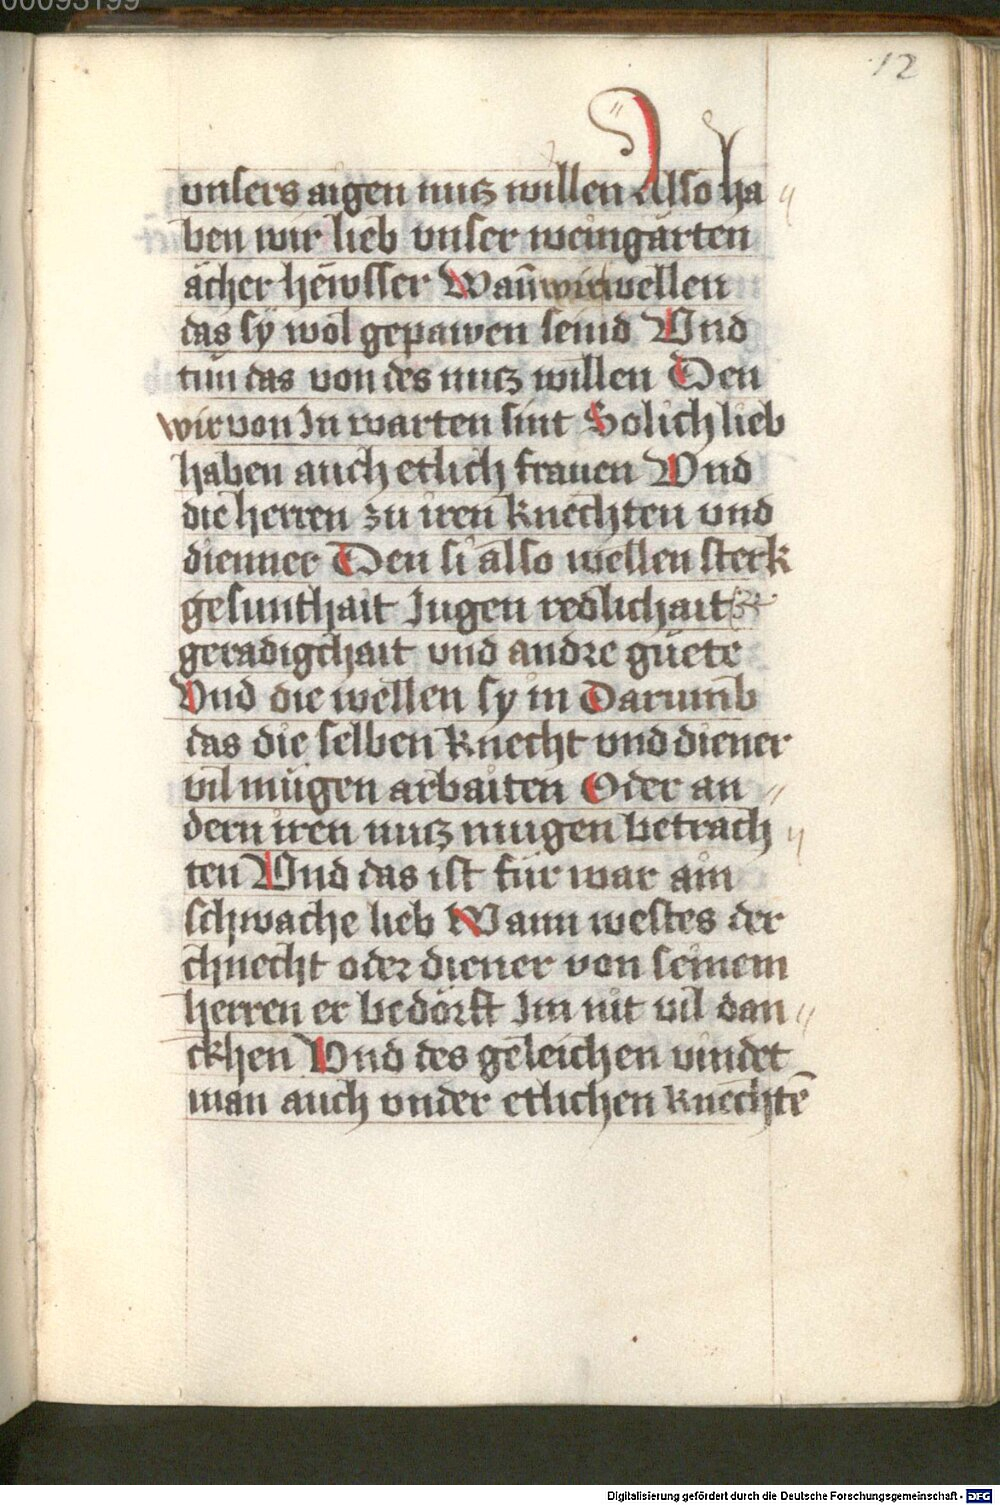 00093199
12
vnsers aigen nutz willen Also ha〃
ben wir lieb vnser weingärten
ächer hëwsser Wañ wir wellen
das sy wol gepawen seind Vnd
tün das von des nutz willen Den
wir von In warten sint Solich lieb
haben auch etlich frauen Vnd
die herren zu iren knechten vnd
dienner Den si also wellen sterk
gesunthait Jugen redlichait
geradigchait vnd andre güete
Vnd die wellen sy in Darumb
das die selben knecht vnd diener
vil mügen arbaiten Oder an〃
dern iren nutz mugen betrach〃
ten Vnd das ist für war ain
schwache lieb Wann westes der
chnecht oder diener von seinem
herren er bedörft Im nit vil dan〃
ckhen Vnd des geleichen vindet
man auch vnder etlichen knechtē
Digitalisierung gefördert durch die Deutsche Forschungsgemeinschaft - DFG